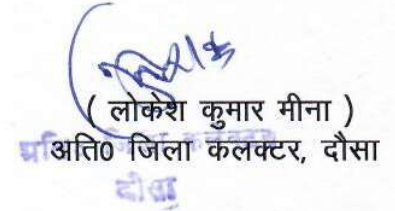 ( लोकेश कुमार मीना )
अति0 जिला कलक्टर, दौसा
दौसा